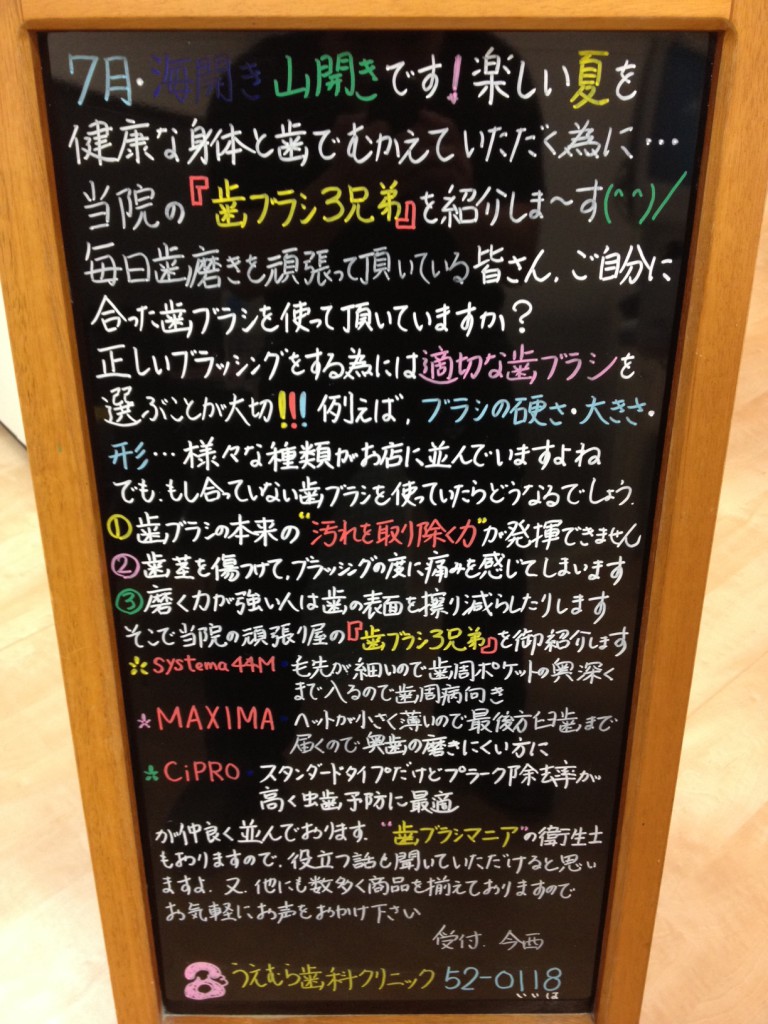 7月・海開き山開きです!楽しい夏を
健康な身体と歯でむかえていただく為に…
当院の『歯ブラシ3兄弟』を紹介しま〜す(^^)/
毎日歯磨きを頑張って頂いている皆さん、ご自分に
合った歯ブラシを使って頂いていますか?
正しいブラッシングをする為には適切な歯ブラシを
選ぶことが大切!!! 例えば、ブラシの硬さ・大きさ・
形…様々な種類がお店に並んでいますよね
でも、もし合っていない歯ブラシを使っていたらどうなるでしょう。
①歯ブラシの本来の"汚れを取り除く力"が発揮できません
②歯茎を傷つけて、ブラッシングの度に痛みを感じてしまいます
③磨く力が強い人は歯の表面を擦り減らしたりします
そこで当院の頑張り屋の『歯ブラシ3兄弟』を御紹介します
*systema 44M・毛先が細いので歯周ポケットの奥深く
まで入るので歯周病向き
*MAXIMA・ヘッドが小さく薄いので最後方臼歯まで
届くので奥歯の磨きにくい方に
*CiPRO・スタンダードタイプだけどプラーク除去率が
高く虫歯予防に最適
が仲良く並んでおります。"歯ブラシマニア"の衛生士
もおりますので、役立つ話を聞いていただけると思い
ますよ。又、他にも数多く商品を揃えておりますので
お気軽にお声をおかけ下さい
受付 今西
うえむら歯科クリニック 52-0118
いいは